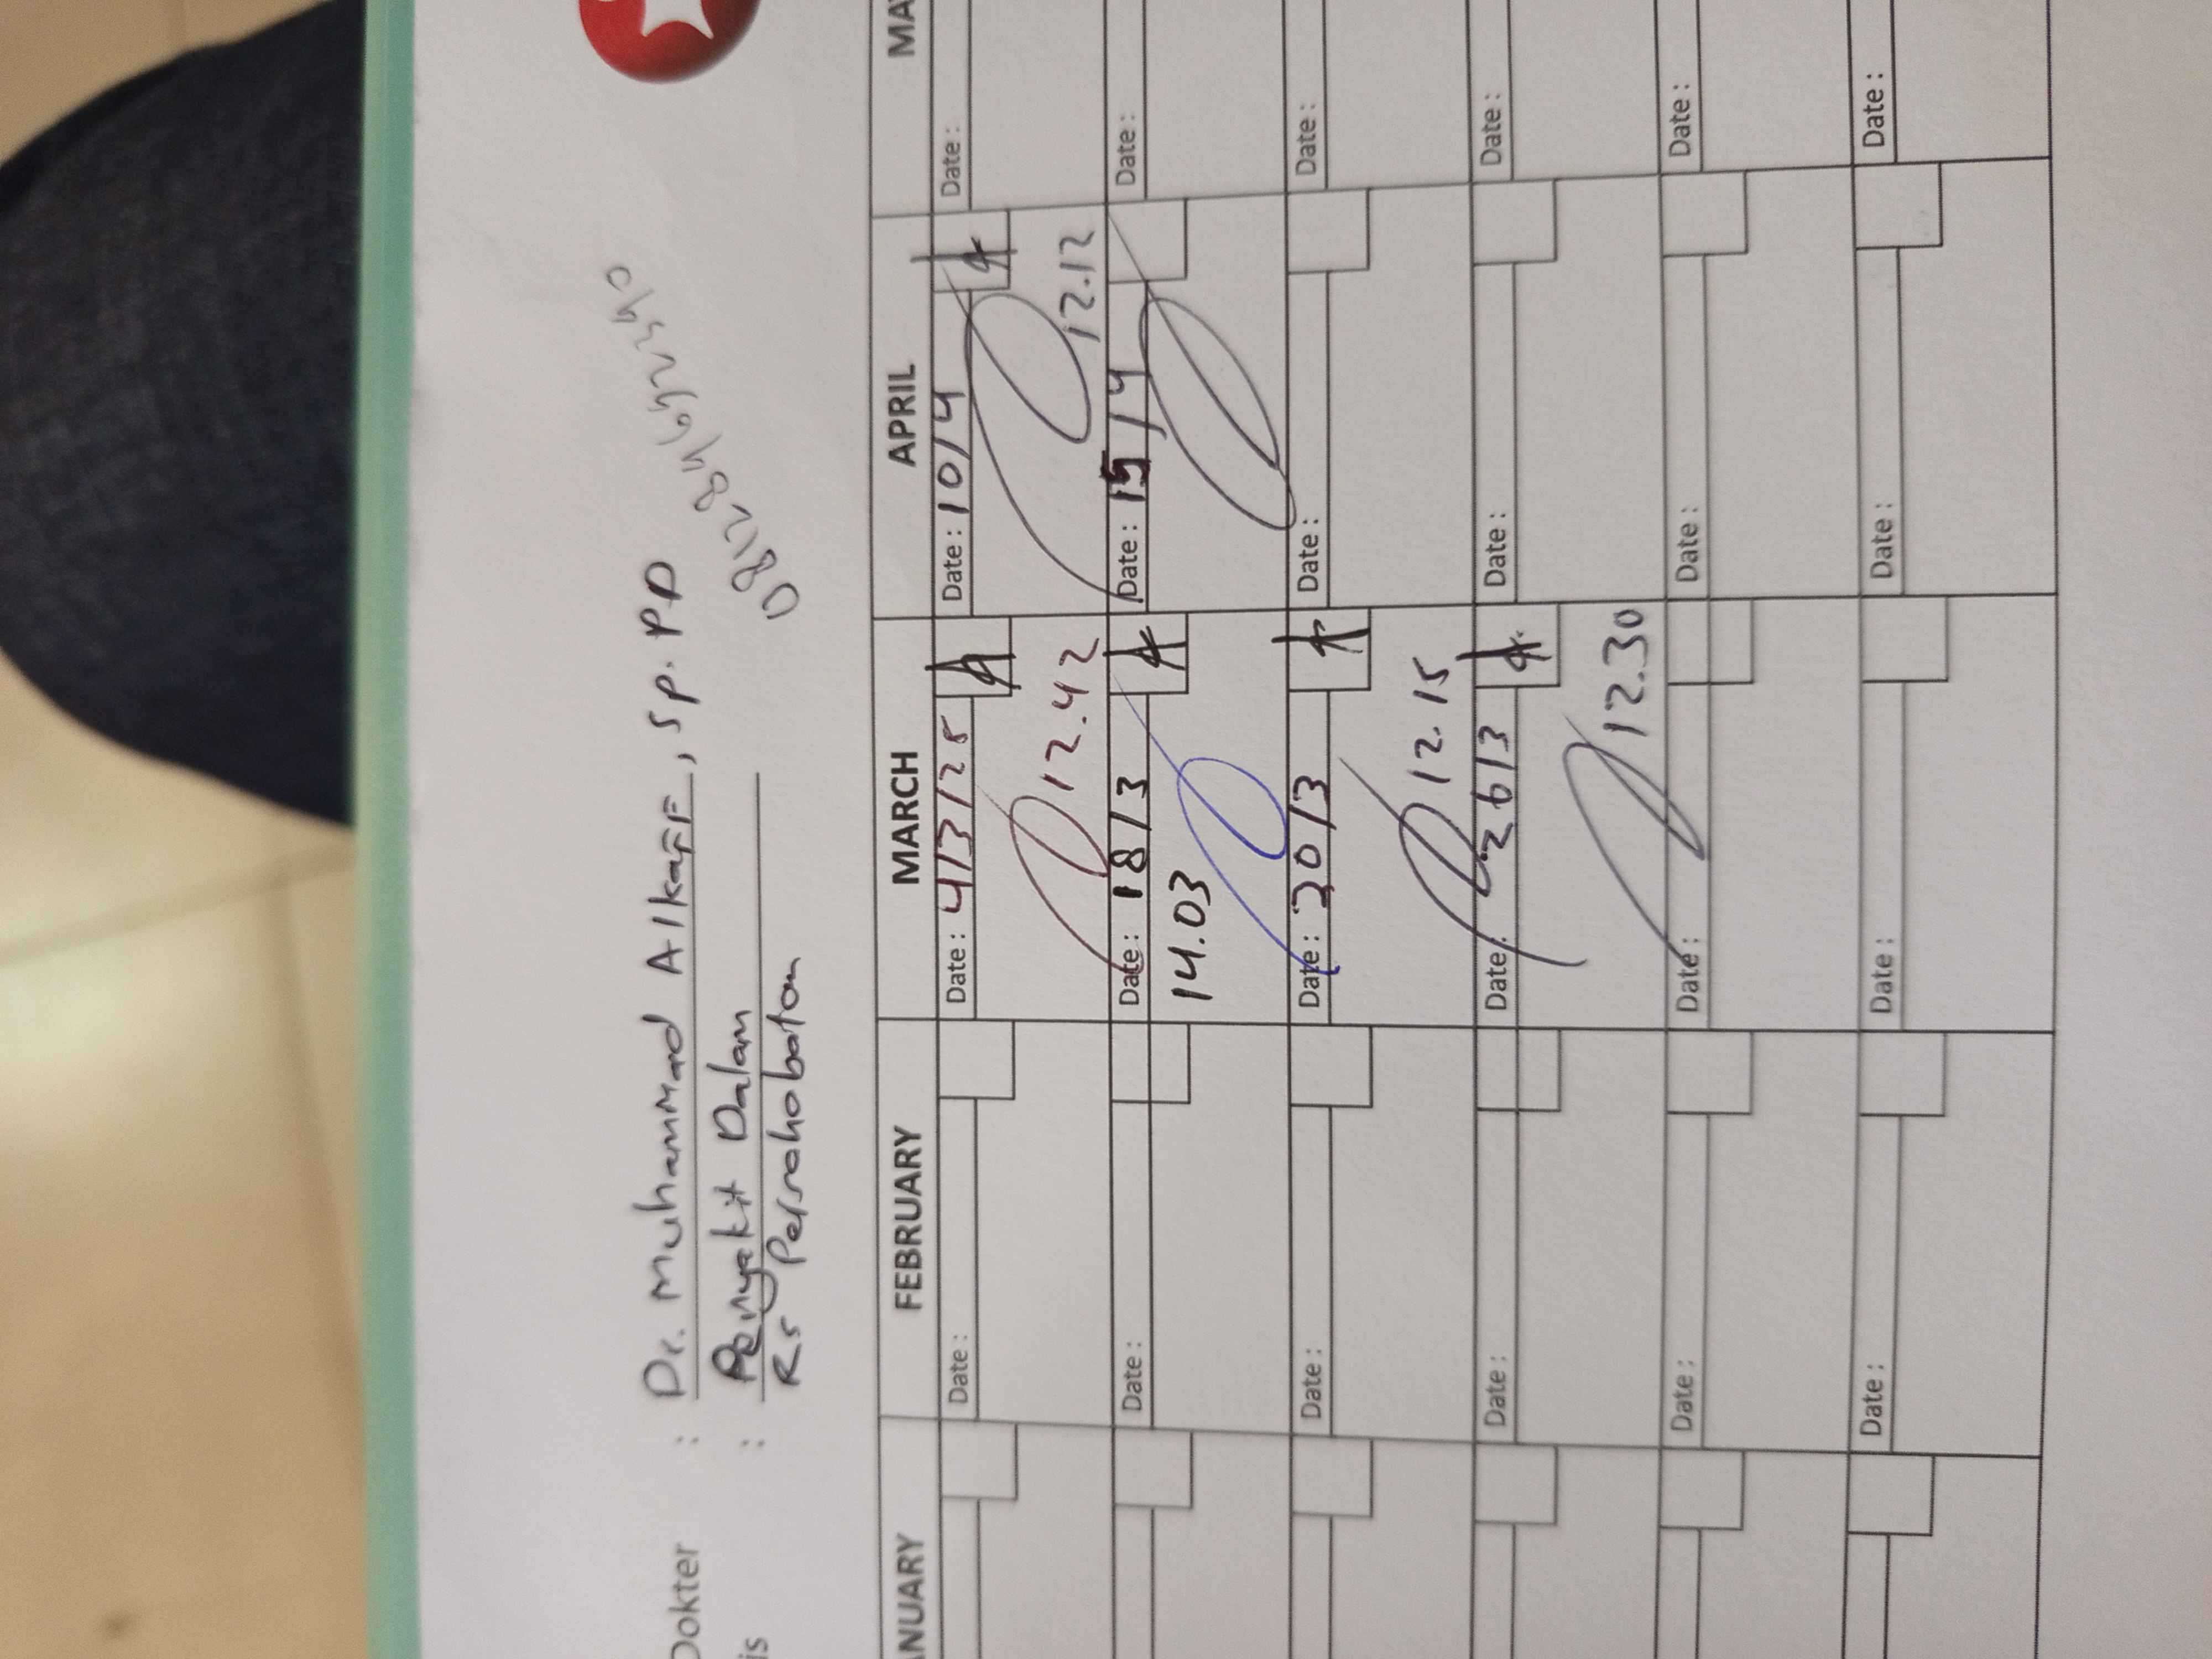 Dokter : Dr. Muhammad Alkaff, Sp. PD
is : Penyakit Dalam
RS Persahabatan
ANUARY FEBRUARY MARCH APRIL MA
Date : Date : 4/3/25 Date : 10/4 Date :
12.42 12.12
Date : Date : 18/3 Date : 15/4 Date :
14.03
Date : Date : 20/3 Date : Date :
12.15
Date : Date : 26/3 Date : Date :
12.30
Date : Date : Date : Date :
Date : Date : Date : Date :